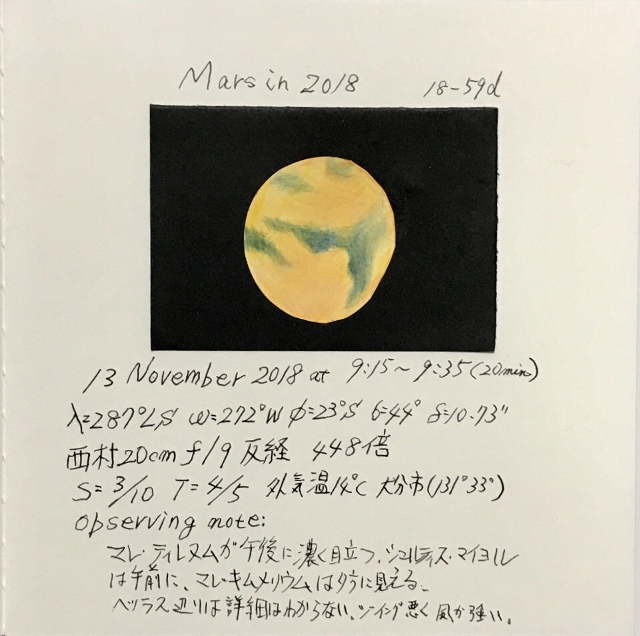 Mars in 2018 18-59d
13 November 2018 at 9:15~9:35(20min)
λ=287°LS ω=272°W φ=23°S ι=44° δ=10.73"
西村20cm f/9 反経 448倍
S=3/10 T=4/5 外気温14℃ 大分市(131°33°)
observing note:
マレ・ティレヌムが午後に濃く目立つ、シュルティス・マイヨル
は午前に、マレ・キムメリウムは夕方に見える、
ヘラス辺りは詳細はわからない、シーイング悪く風が強い。